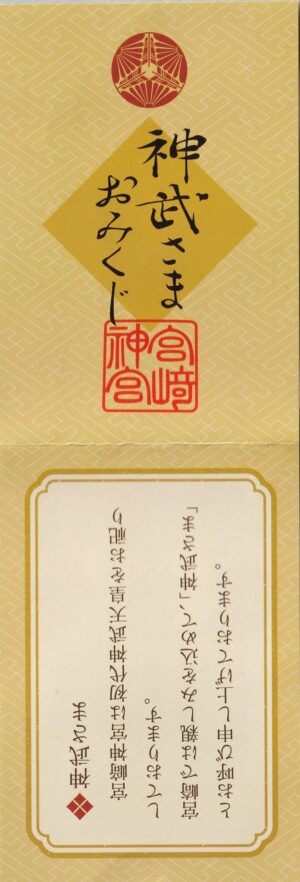 神武さま
おみくじ
宮崎
神宮
神武さま
宮崎神宮は初代神武天皇をお祀り
しております。
宮崎では親しみを込めて、「神武さま」
とお呼び申し上げております。